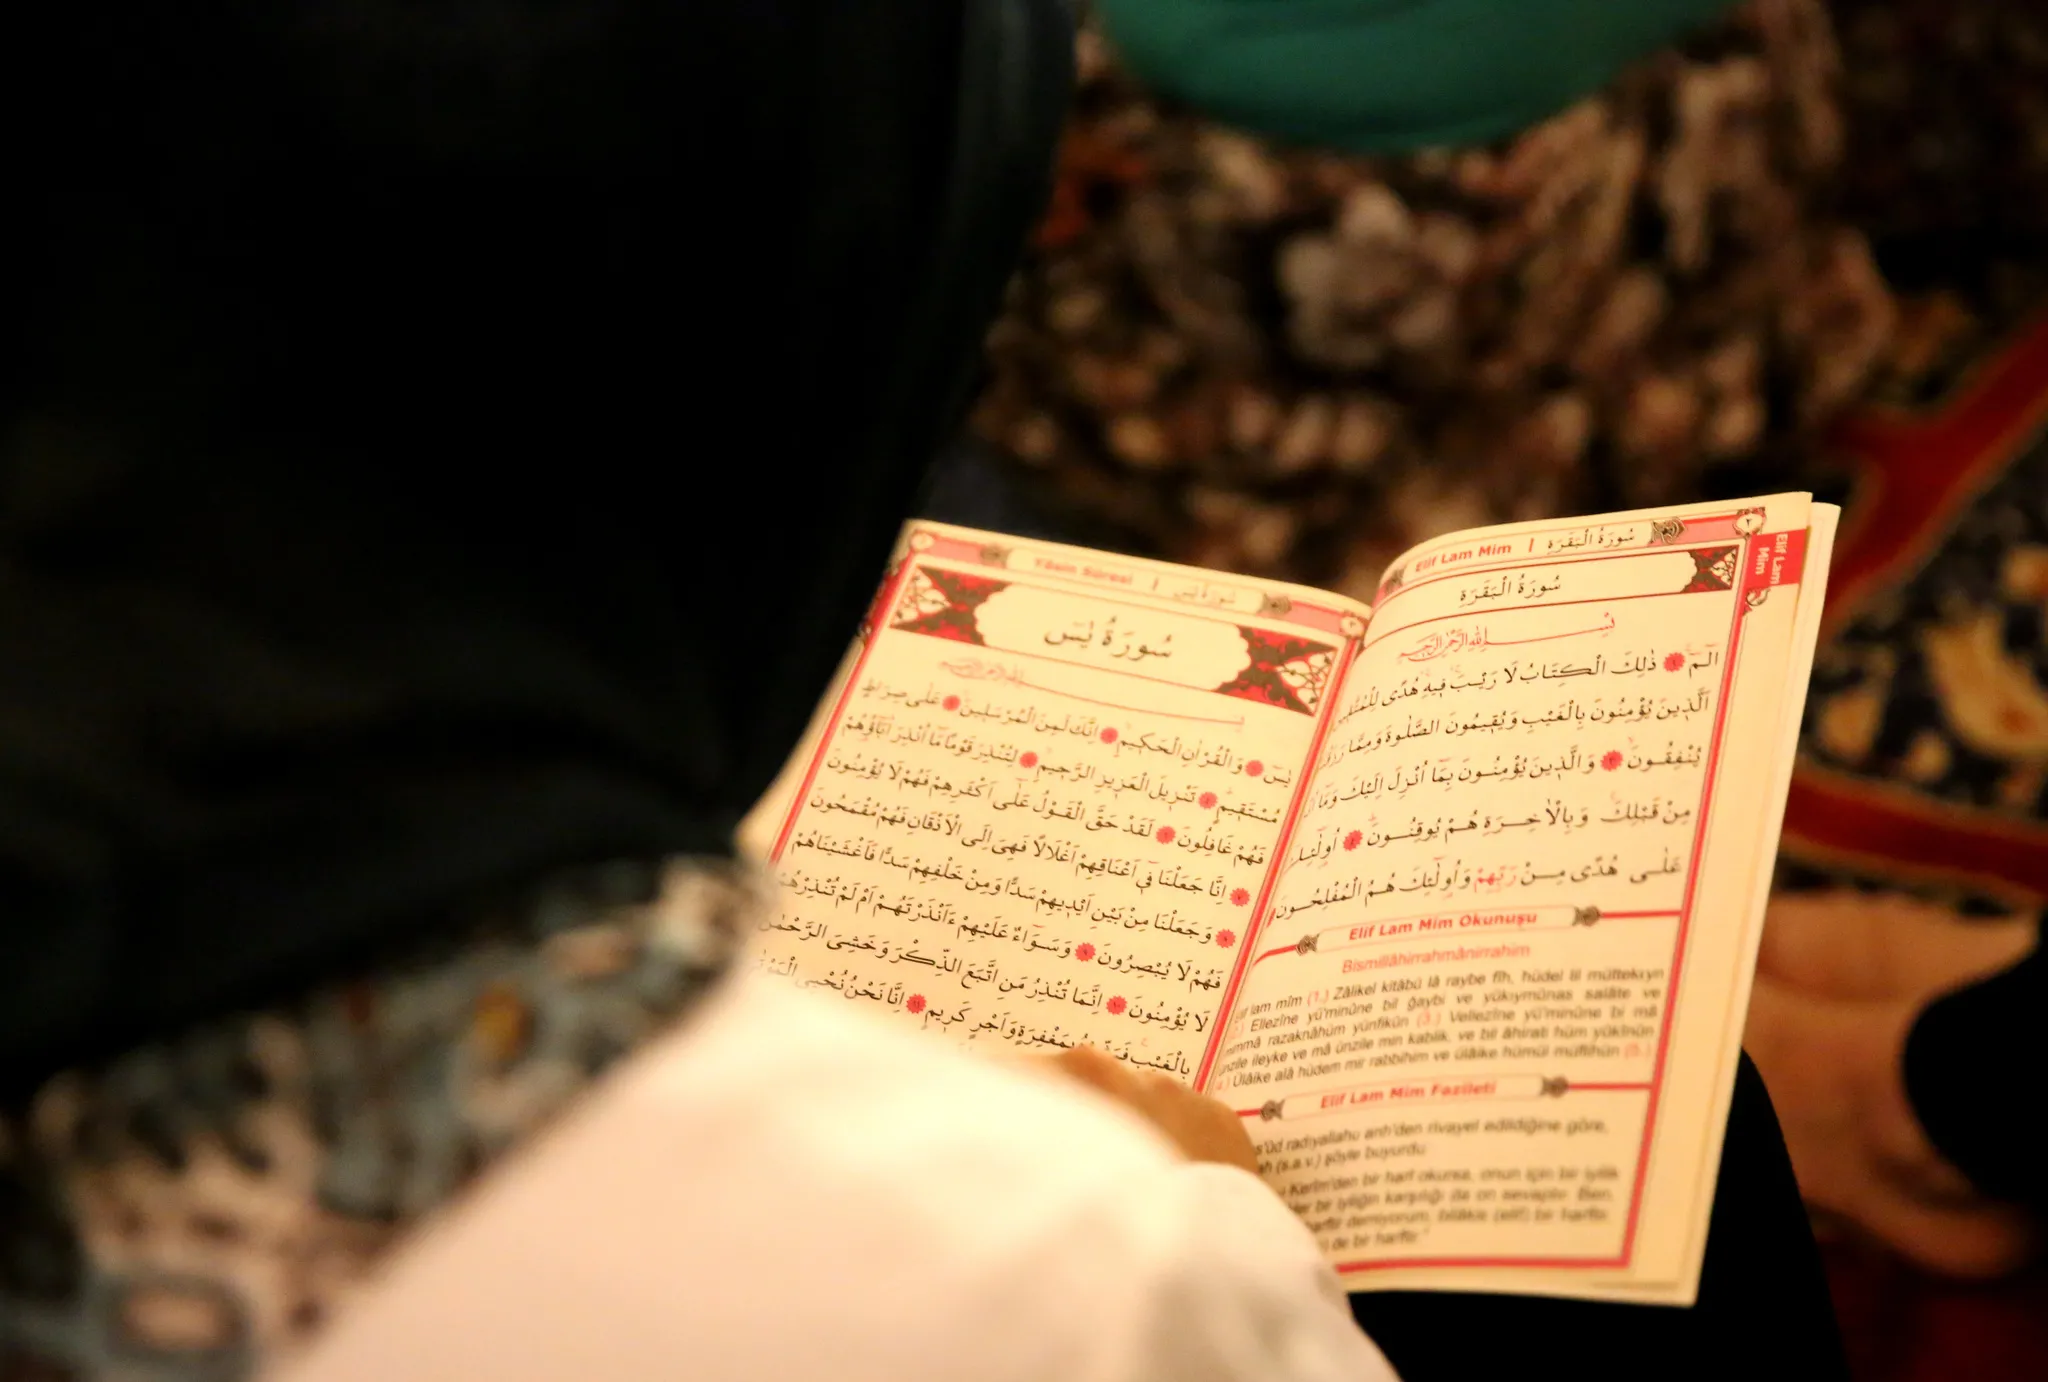 Elif Lam Mim | سُورَةُ الْبَقَرَةِ
٢
Elif Lam
Mim
سُورَةُ الْبَقَرَةِ
بِسْمِ اللّٰهِ الرَّحْمٰنِ الرَّحِيمِ
الٓمٓ ١ ذٰلِكَ الْكِتَابُ لَا رَيْبَ فِيهِ هُدًى لِلْمُتَّقِينَ
اَلَّذِينَ يُؤْمِنُونَ بِالْغَيْبِ وَيُقِيمُونَ الصَّلٰوةَ وَمِمَّا
يُنْفِقُونَ ٣ وَالَّذِينَ يُؤْمِنُونَ بِمَٓا اُنْزِلَ اِلَيْكَ وَمَٓا
مِنْ قَبْلِكَ وَبِالْاٰخِرَةِ هُمْ يُوقِنُونَ ٤ اُولٰٓئِكَ
عَلٰى هُدًى مِنْ رَبِّهِمْ وَاُولٰٓئِكَ هُمُ الْمُفْلِحُونَ
Elif Lam Mim Okunuşu
Bismillâhirrahmânirrahîm
lam mîm (1.) Zâlikel kitâbü lâ raybe fîh, hüdel lil müttekıyn
Ellezîne yü'minûne bil ğaybi ve yükıymûnas salâte ve
razaknâhüm yünfikûn (3.) Vellezîne yü'minûne bi mâ
ünzile ileyke ve mâ ünzile min kablik, ve bil âhirati hüm yûkînûn
Ülâike alâ hüdem mir rabbihim ve ülâike hümül müflihûn (5.)
Elif Lam Mim Fazileti
radıyallahu anh'den rivayet edildiğine göre,
(s.a.v.) şöyle buyurdu
Kerîm'den bir harf okursa, onun için bir iyilik
Her bir iyiliğin karşılığı da on sevaptır. Ben,
harftir demiyorum, bilâkis (elif) bir harftir,
de bir harftir."
Yâsin Sûresi | سُورَةُ يٰسٓ
سُورَةُ يٰسٓ
بِسْمِ اللّٰهِ الرَّحْمٰنِ الرَّحِيمِ
يٰسٓ ١ وَالْقُرْاٰنِ الْحَكِيمِ ٢ اِنَّكَ لَمِنَ الْمُرْسَلِينَ ٣ عَلٰى صِرَاطٍ
مُسْتَقِيمٍ ٤ تَنْزِيلَ الْعَزِيزِ الرَّحِيمِ ٥ لِتُنْذِرَ قَوْمًا مَٓا اُنْذِرَ اٰبَٓاؤُهُمْ
فَهُمْ غَافِلُونَ ٦ لَقَدْ حَقَّ الْقَوْلُ عَلٰٓى اَكْثَرِهِمْ فَهُمْ لَا يُؤْمِنُونَ
٧ اِنَّا جَعَلْنَا فِٓي اَعْنَاقِهِمْ اَغْلَالًا فَهِيَ اِلَى الْاَذْقَانِ فَهُمْ مُقْمَحُونَ
٨ وَجَعَلْنَا مِنْ بَيْنِ اَيْدِيهِمْ سَدًّا وَمِنْ خَلْفِهِمْ سَدًّا فَاَغْشَيْنَاهُمْ
فَهُمْ لَا يُبْصِرُونَ ٩ وَسَوَٓاءٌ عَلَيْهِمْ ءَاَنْذَرْتَهُمْ اَمْ لَمْ تُنْذِرْهُمْ
لَا يُؤْمِنُونَ ١٠ اِنَّمَا تُنْذِرُ مَنِ اتَّبَعَ الذِّكْرَ وَخَشِيَ الرَّحْمٰنَ
بِالْغَيْبِ بِمَغْفِرَةٍ وَاَجْرٍ كَرِيمٍ ١١ اِنَّا نَحْنُ نُحْيِ